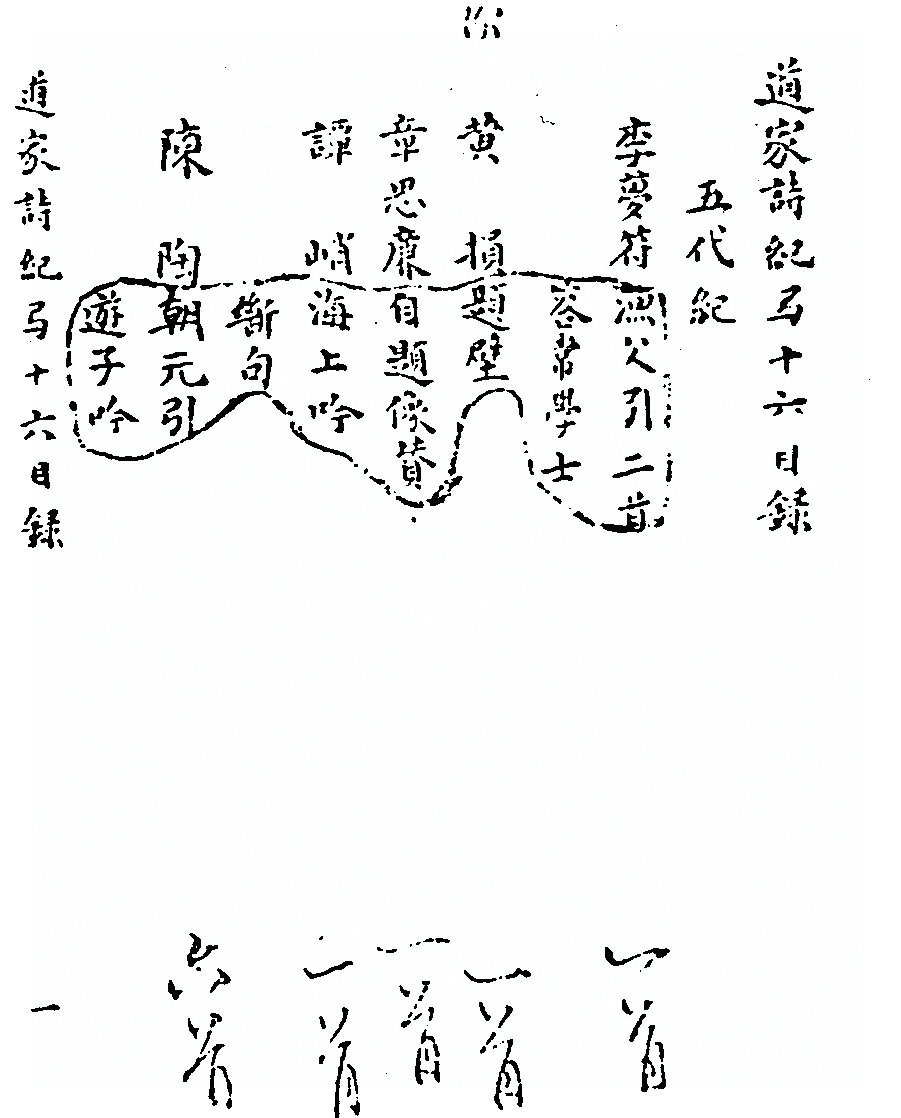 道家詩紀弓十六目錄
五代紀
李夢符漁父引二首
答常學士
黃損題壁
章思廉自題像贊
譚峭海上吟
斷句
陳陶朝元引
遊子吟
道家詩紀弓十六目錄
一
一首
一首
一首
一首
六首